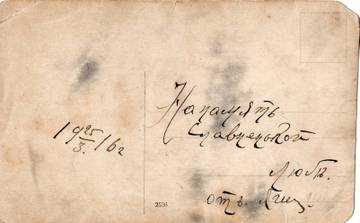 19 25/3 16 г
На память
Славненькой
Любѣ.
отъ
2536